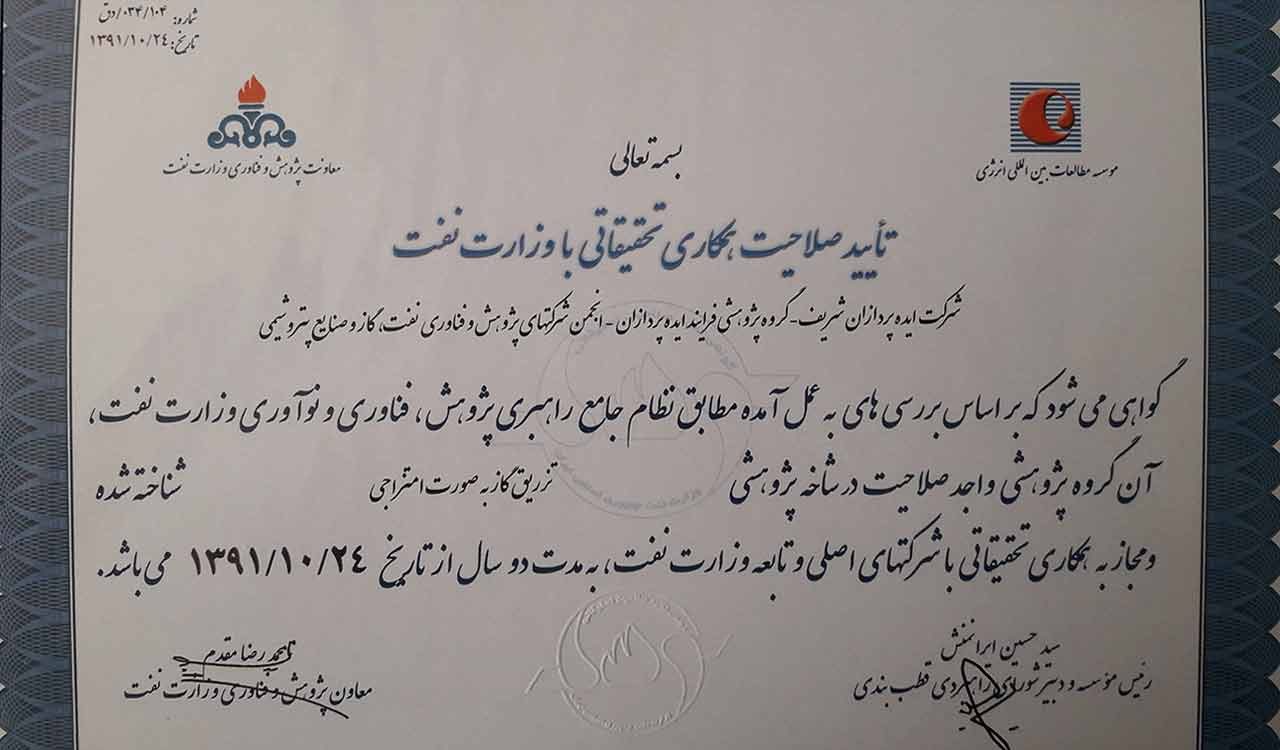 شماره: ۰۳۴/۱۰۴/دق
تاریخ: ۱۳۹۱/۱۰/۲۴
موسسه مطالعات بین المللی انرژی
معاونت پژوهش و فناوری وزارت نفت
بسمه تعالی
تأیید صلاحیت همکاری تحقیقاتی با وزارت نفت
شرکت ایده پردازان شریف - گروه پژوهشی فرایند ایده پردازان - انجمن شرکتهای پژوهش و فناوری نفت، گاز و صنایع پتروشیمی
گواهی می شود که بر اساس بررسی های به عمل آمده مطابق نظام جامع راهبری پژوهش، فناوری و نوآوری وزارت نفت،
آن گروه پژوهشی واجد صلاحیت در شاخه پژوهشی تزریق گاز به صورت امتزاجی شناخته شده
و مجاز به همکاری تحقیقاتی با شرکتهای اصلی و تابعه وزارت نفت، به مدت دو سال از تاریخ ۱۳۹۱/۱۰/۲۴ می باشد.
سید حسین ایرانمنش
رئیس مؤسسه و دبیر شورای راهبردی قطب بندی
محمد رضا مقدم
معاون پژوهش و فناوری وزارت نفت